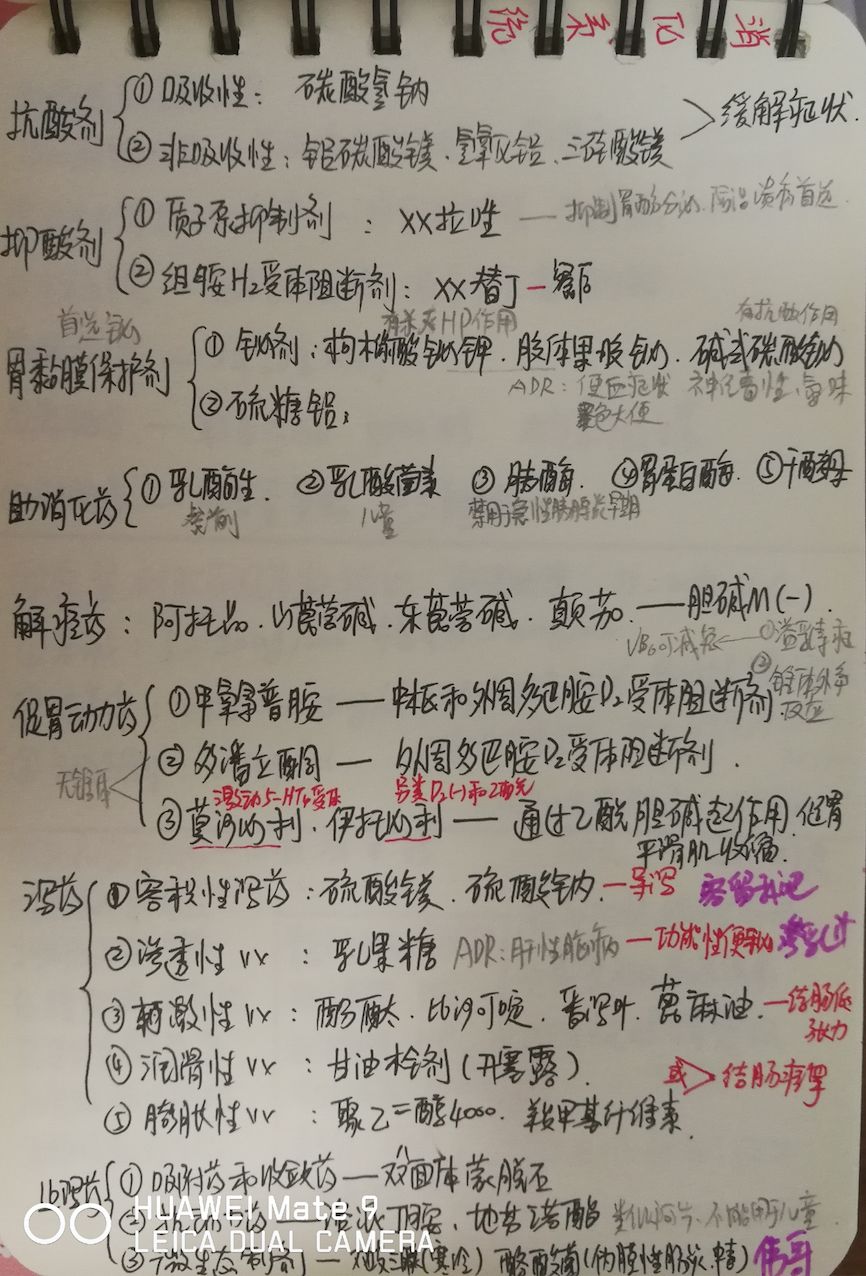 消化系统
抗酸剂 ① 吸收性：碳酸氢钠
② 非吸收性：铝碳酸镁、氢氧化铝、三硅酸镁 > 缓解症状.
抑酸剂 ① 质子泵抑制剂：XX拉唑 — 抑制胃酸分泌、首选
② 组胺H₂受体阻断剂：XX替丁 —
首选铋 有杀灭HP作用 有抗酸作用
胃黏膜保护剂 ① 铋剂：枸橼酸铋钾、胶体果胶铋、碱式碳酸铋
ADR：便 黑色大便 神经毒性、氨味
② 硫糖铝；
助消化药 ① 乳酶生. ② 乳酸菌素 ③ 胰酶. ④ 胃蛋白酶. ⑤ 干酵母
餐前 儿童 禁用于急性胰腺炎早期
解痉药：阿托品、山莨菪碱、东莨菪碱、颠茄. — 胆碱M(-).
VB6可减轻 ← ① 溢乳
② 锥体外系反应
促胃动力药 ① 甲氧氯普胺 — 中枢和外周多巴胺D₂受体阻断剂
② 多潘立酮 — 外周多巴胺D₂受体阻断剂.
无锥体
激动5-HT₄受体
③ 莫沙必利、伊托必利 — 通过乙酰胆碱起作用，促胃
平滑肌收缩.
泻药 ① 容积性泻药：硫酸镁、硫酸钠. — 导泻
② 渗透性〃：乳果糖 ADR：肝性脑病 — 功能性便秘
③ 刺激性〃：酚酞、比沙可啶、番泻叶、蓖麻油. — 结肠低
张力
④ 润滑性〃：甘油栓剂(开塞露). 或 > 结肠痉挛
⑤ 膨胀性〃：聚乙二醇4000、羧甲基纤维素.
止泻药 ① 吸附药和收敛药 — 双八面体蒙脱石
② 洛哌丁胺、地芬诺酯 类似阿片、不能用于儿童
HUAWEI Mate 9
LEICA DUAL CAMERA
③ 微生态制剂 — 酪酸菌(伪膜性肠炎